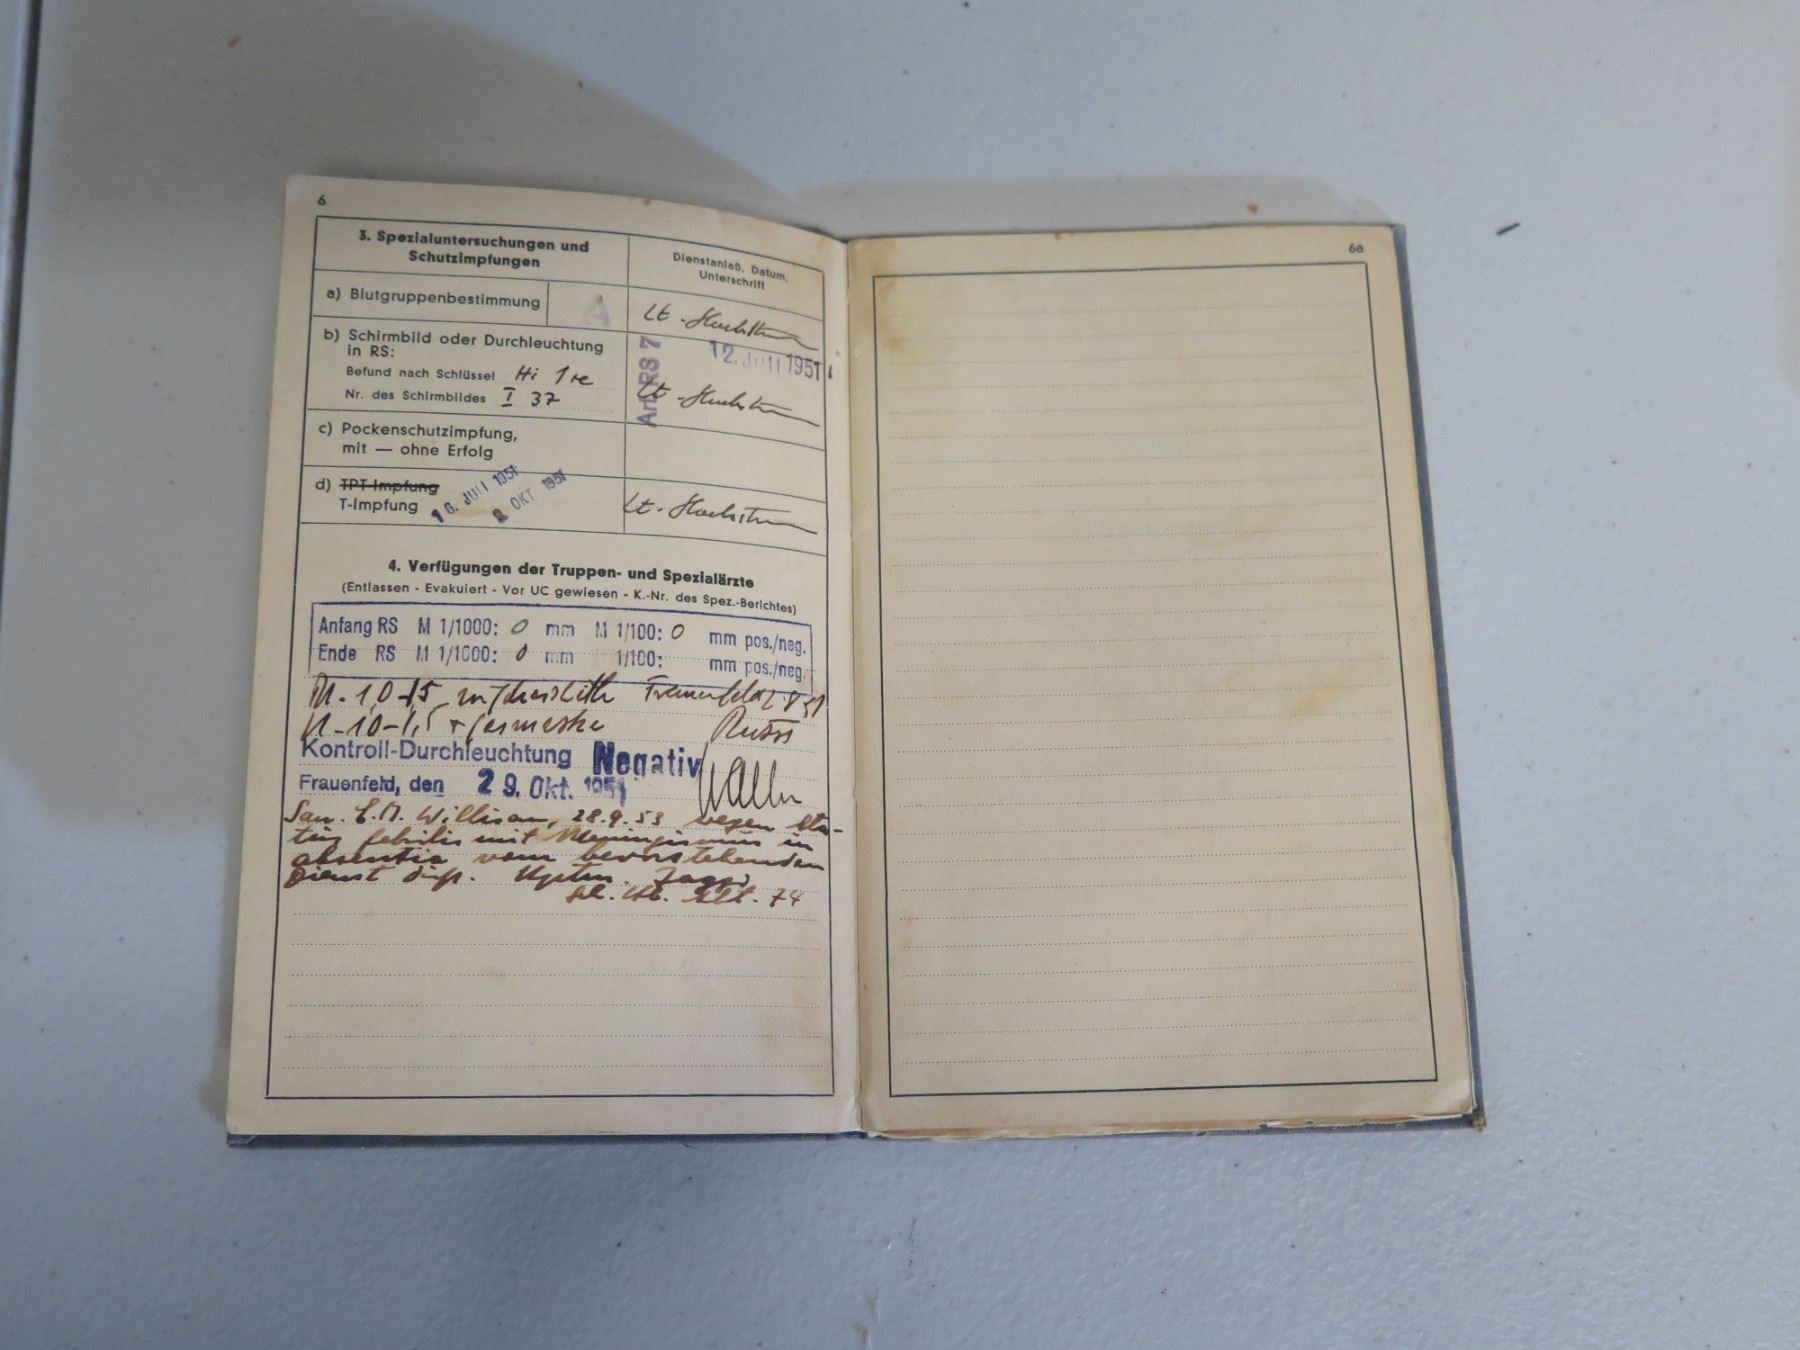 6
3. Spezialuntersuchungen und
Schutzimpfungen
Dienstanlaß, Datum,
Unterschrift
a) Blutgruppenbestimmung A
Lt.
b) Schirmbild oder Durchleuchtung
in RS:
Art RS 7
12. Juli 1951
Befund nach Schlüssel Hi 1 re
Nr. des Schirmbildes I 37
Lt.
c) Pockenschutzimpfung,
mit — ohne Erfolg
d) TPT-Impfung
T-Impfung
16. JULI 1951
OKT 1951
Lt.
4. Verfügungen der Truppen- und Spezialärzte
(Entlassen - Evakuiert - Vor UC gewiesen - K.-Nr. des Spez.-Berichtes)
Anfang RS M 1/1000: 0 mm M 1/100: 0 mm pos./neg.
Ende RS M 1/1000: 0 mm 1/100: mm pos./neg.
Kontroll-Durchleuchtung Negativ
Frauenfeld, den 29. Okt. 1951
San. 28.9.53 wegen Sta-
tus febrilis mit Meningismus in
absentia vom bevorstehenden
Dienst disp. Hptm.
74
6a